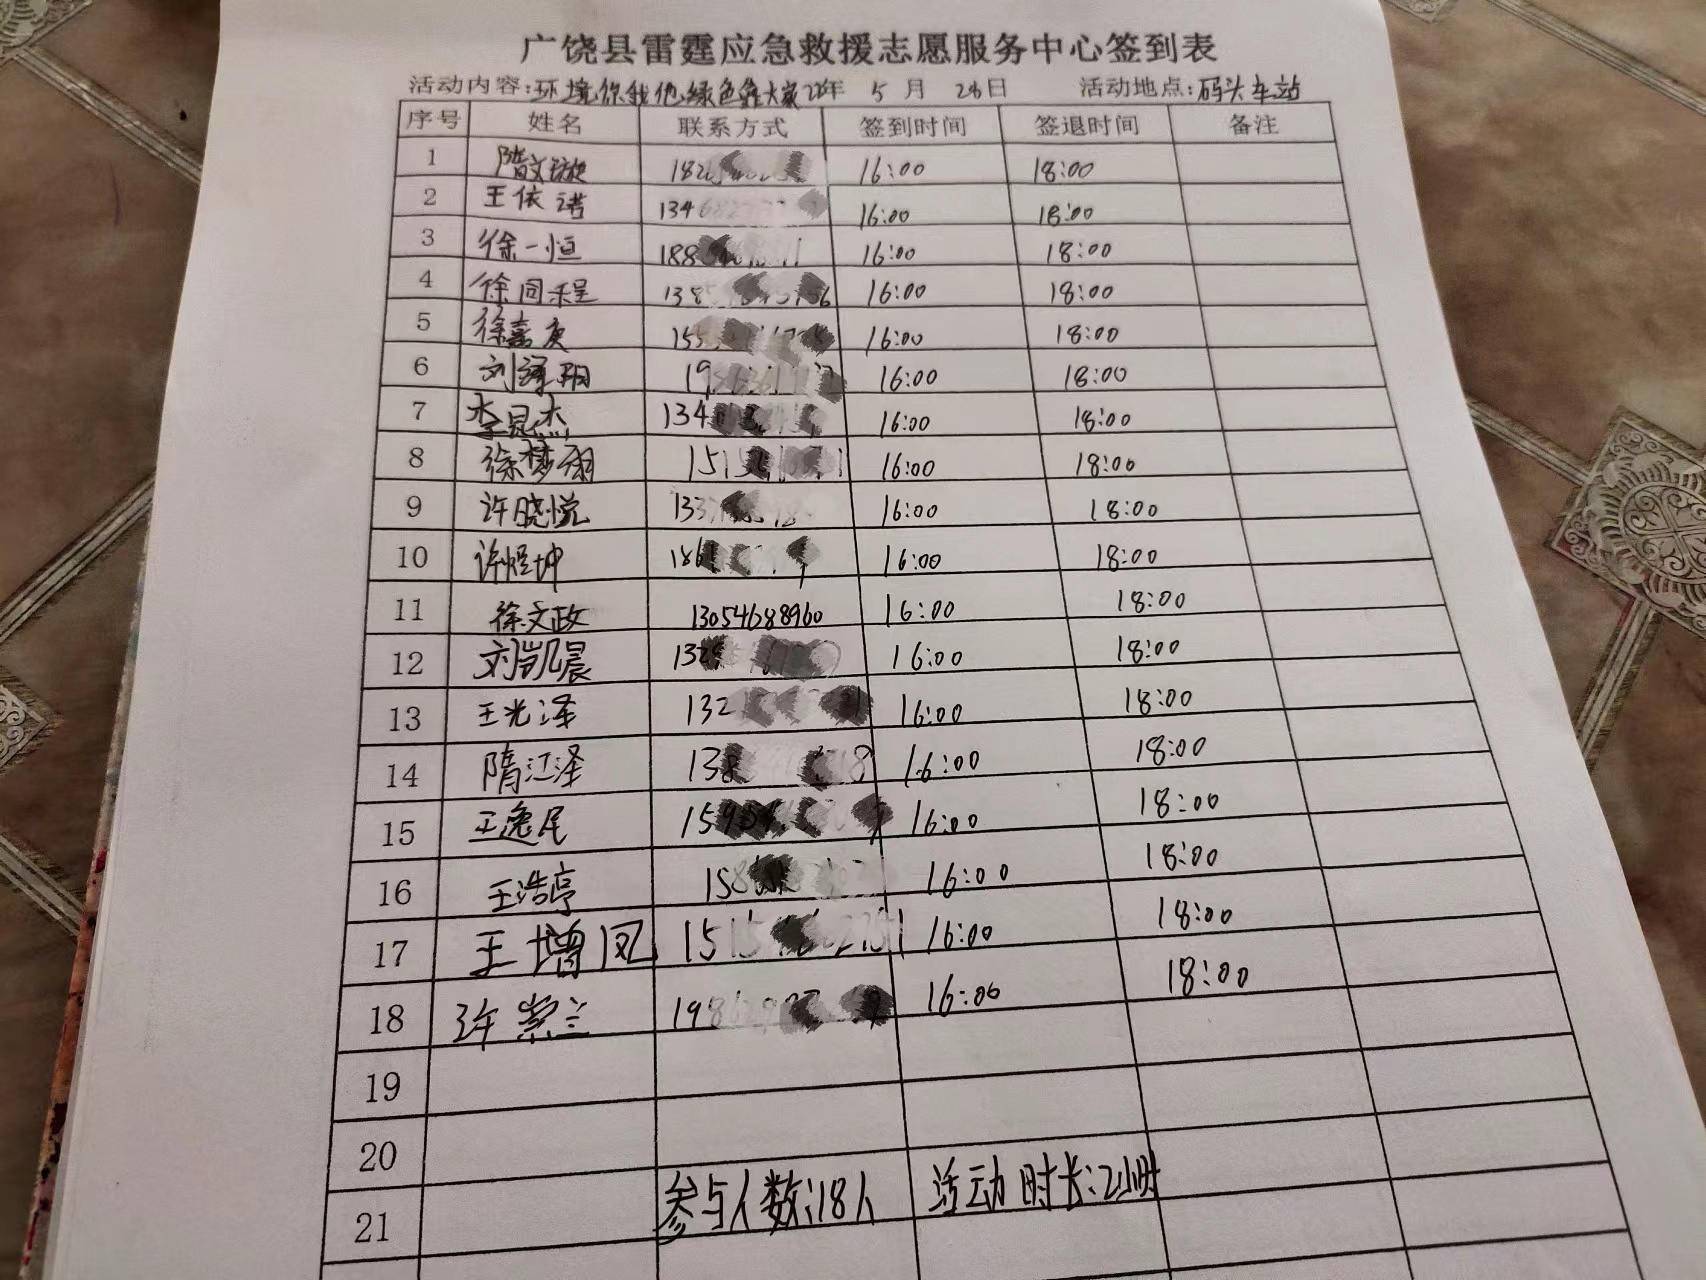 广饶县雷霆应急救援志愿服务中心签到表
活动内容:环境你我他绿色靠大家22年 5 月 28日 活动地点:码头车站
序号 姓名 联系方式 签到时间 签退时间 备注
1 隋文璇 182 16:00 18:00
2 王依诺 134 16:00 18:00
3 徐一恒 188 16:00 18:00
4 徐同程 138 16:00 18:00
5 徐嘉庚 155 16:00 18:00
6 刘泽玥 19 16:00 18:00
7 李昆杰 134 16:00 18:00
8 徐梦翔 1515 16:00 18:00
9 许晓悦 133 16:00 18:00
10 许煜坤 186 16:00 18:00
11 徐文政 13054688960 16:00 18:00
12 刘凯晨 132 16:00 18:00
13 王光泽 132 16:00 18:00
14 隋江泽 138 16:00 18:00
15 王逸民 159 16:00 18:00
16 王浩亭 158 16:00 18:00
17 王增凤 1515 16:00 18:00
18 许崇兰 198 16:00 18:00
19
20
21 参与人数:18人 活动时长:2小时